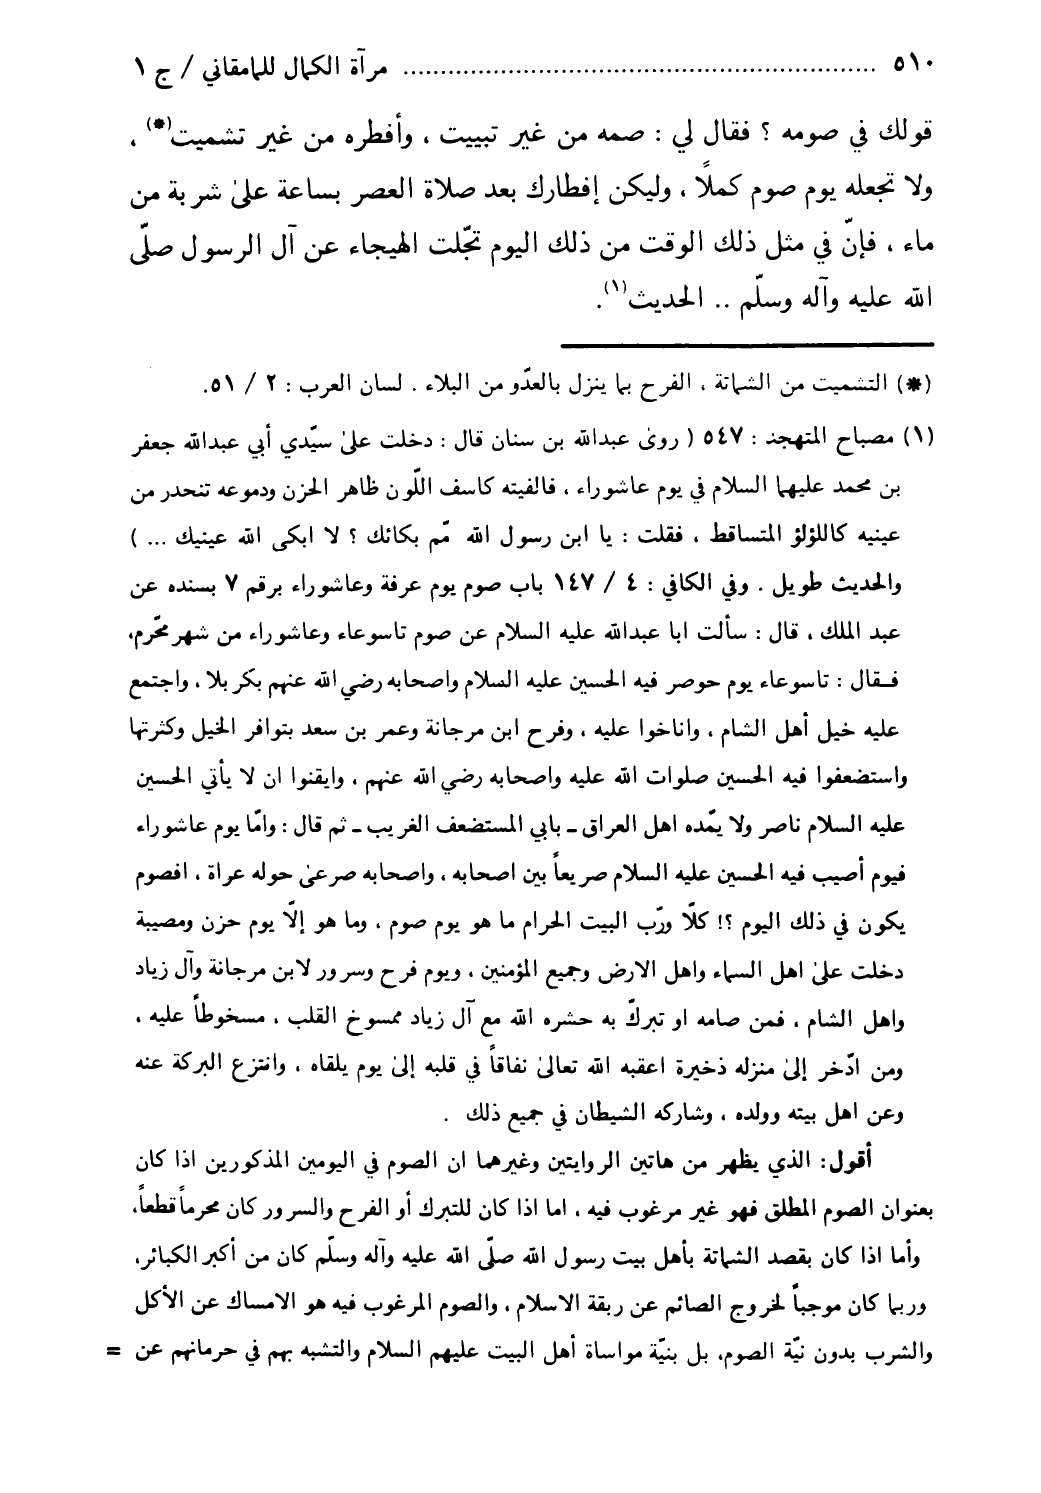 ٥١٠ ............................................................... مرآة الكمال للمامقاني / ج ١
قولك في صومه ؟ فقال لي : صمه من غير تبييت ، وأفطره من غير تشميت(*) ،
ولا تجعله يوم صوم كملاً ، وليكن إفطارك بعد صلاة العصر بساعة على شربة من
ماء ، فإنّ في مثل ذلك الوقت من ذلك اليوم تجّلت الهيجاء عن آل الرسول صلّى
الله عليه وآله وسلّم .. الحديث(١).
(*) التشميت من الشماتة ، الفرح بما ينزل بالعدّو من البلاء . لسان العرب : ٢ / ٥١.
(١) مصباح المتهجد : ٥٤٧ ( روىٰ عبدالله بن سنان قال : دخلت علىٰ سيّدي أبي عبدالله جعفر
بن محمد عليهما السلام في يوم عاشوراء ، فالفيته كاسف اللّون ظاهر الحزن ودموعه تنحدر من
عينيه كاللؤلؤ المتساقط ، فقلت : يا ابن رسول الله مّم بكائك ؟ لا ابكى الله عينيك ... )
والحديث طويل . وفي الكافي : ٤ / ١٤٧ باب صوم يوم عرفة وعاشوراء برقم ٧ بسنده عن
عبد الملك ، قال : سألت ابا عبدالله عليه السلام عن صوم تاسوعاء وعاشوراء من شهر محّرم،
فـقال : تاسوعاء يوم حوصر فيه الحسين عليه السلام واصحابه رضي الله عنهم بكربلا ، واجتمع
عليه خيل أهل الشام ، واناخوا عليه ، وفرح ابن مرجانة وعمر بن سعد بتوافر الخيل وكثرتها
واستضعفوا فيه الحسين صلوات الله عليه واصحابه رضي الله عنهم ، وايقنوا ان لا يأتي الحسين
عليه السلام ناصر ولا يمّده اهل العراق ـ بابي المستضعف الغريب ـ ثم قال : وامّا يوم عاشوراء
فيوم أصيب فيه الحسين عليه السلام صريعاً بين اصحابه ، واصحابه صرعىٰ حوله عراة ، افصوم
يكون في ذلك اليوم ؟! كلّا ورّب البيت الحرام ما هو يوم صوم ، وما هو إلّا يوم حزن ومصيبة
دخلت علىٰ اهل السماء واهل الارض وجميع المؤمنين ، ويوم فرح وسرور لابن مرجانة وآل زياد
واهل الشام ، فمن صامه او تبركّ به حشره الله مع آل زياد ممسوخ القلب ، مسخوطاً عليه ،
ومن ادّخر إلىٰ منزله ذخيرة اعقبه الله تعالىٰ نفاقاً في قلبه إلىٰ يوم يلقاه ، وانتزع البركة عنه
وعن اهل بيته وولده ، وشاركه الشيطان في جميع ذلك .
أقول: الذي يظهر من هاتين الروايتين وغيرهما ان الصوم في اليومين المذكورين اذا كان
بعنوان الصوم المطلق فهو غير مرغوب فيه ، اما اذا كان للتبرك أو الفرح والسرور كان محرماً قطعاً،
وأما اذا كان بقصد الشماتة بأهل بيت رسول الله صلّى الله عليه وآله وسلّم كان من أكبر الكبائر،
وربما كان موجباً لخروج الصائم عن ربقة الاسلام ، والصوم المرغوب فيه هو الامساك عن الأكل
والشرب بدون نيّة الصوم، بل بنيّة مواساة أهل البيت عليهم السلام والتشبه بهم في حرمانهم عن =